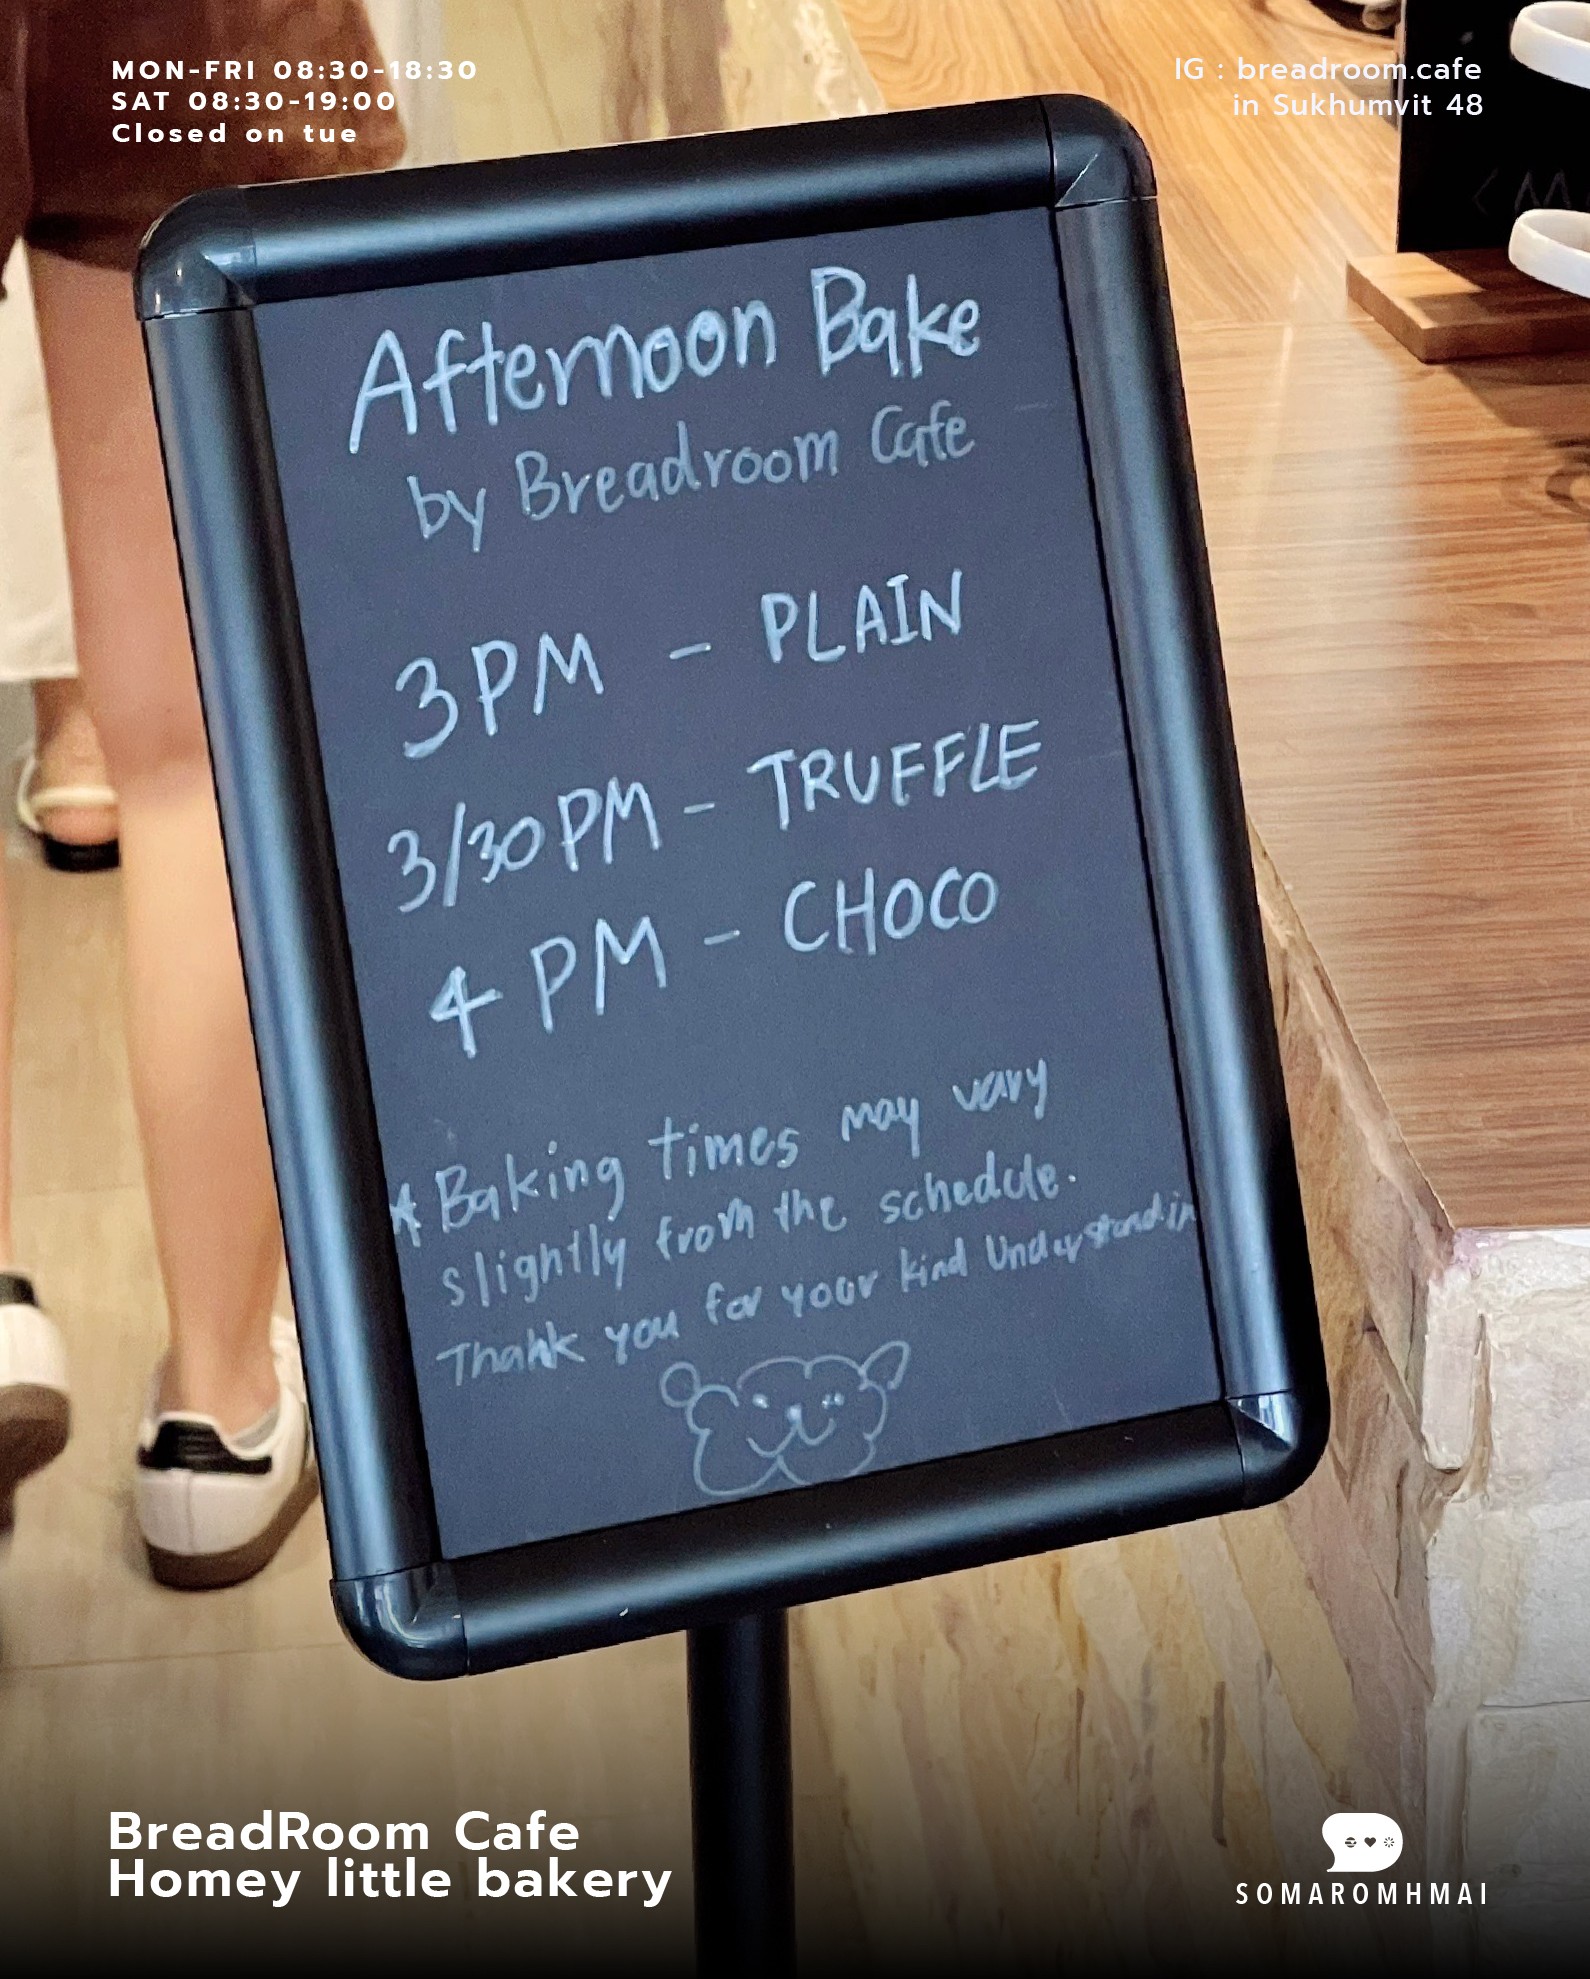 MON-FRI 08:30-18:30
SAT 08:30-19:00
Closed on tue
IG : breadroom.cafe
in Sukhumvit 48
Afternoon Bake
by Breadroom Cafe
3PM - PLAIN
3/30PM - TRUFFLE
4 PM - CHOCO
* Baking times may vary
slightly from the schedule.
Thank you for your kind Understandin
BreadRoom Cafe
Homey little bakery
SOMAROMHMAI